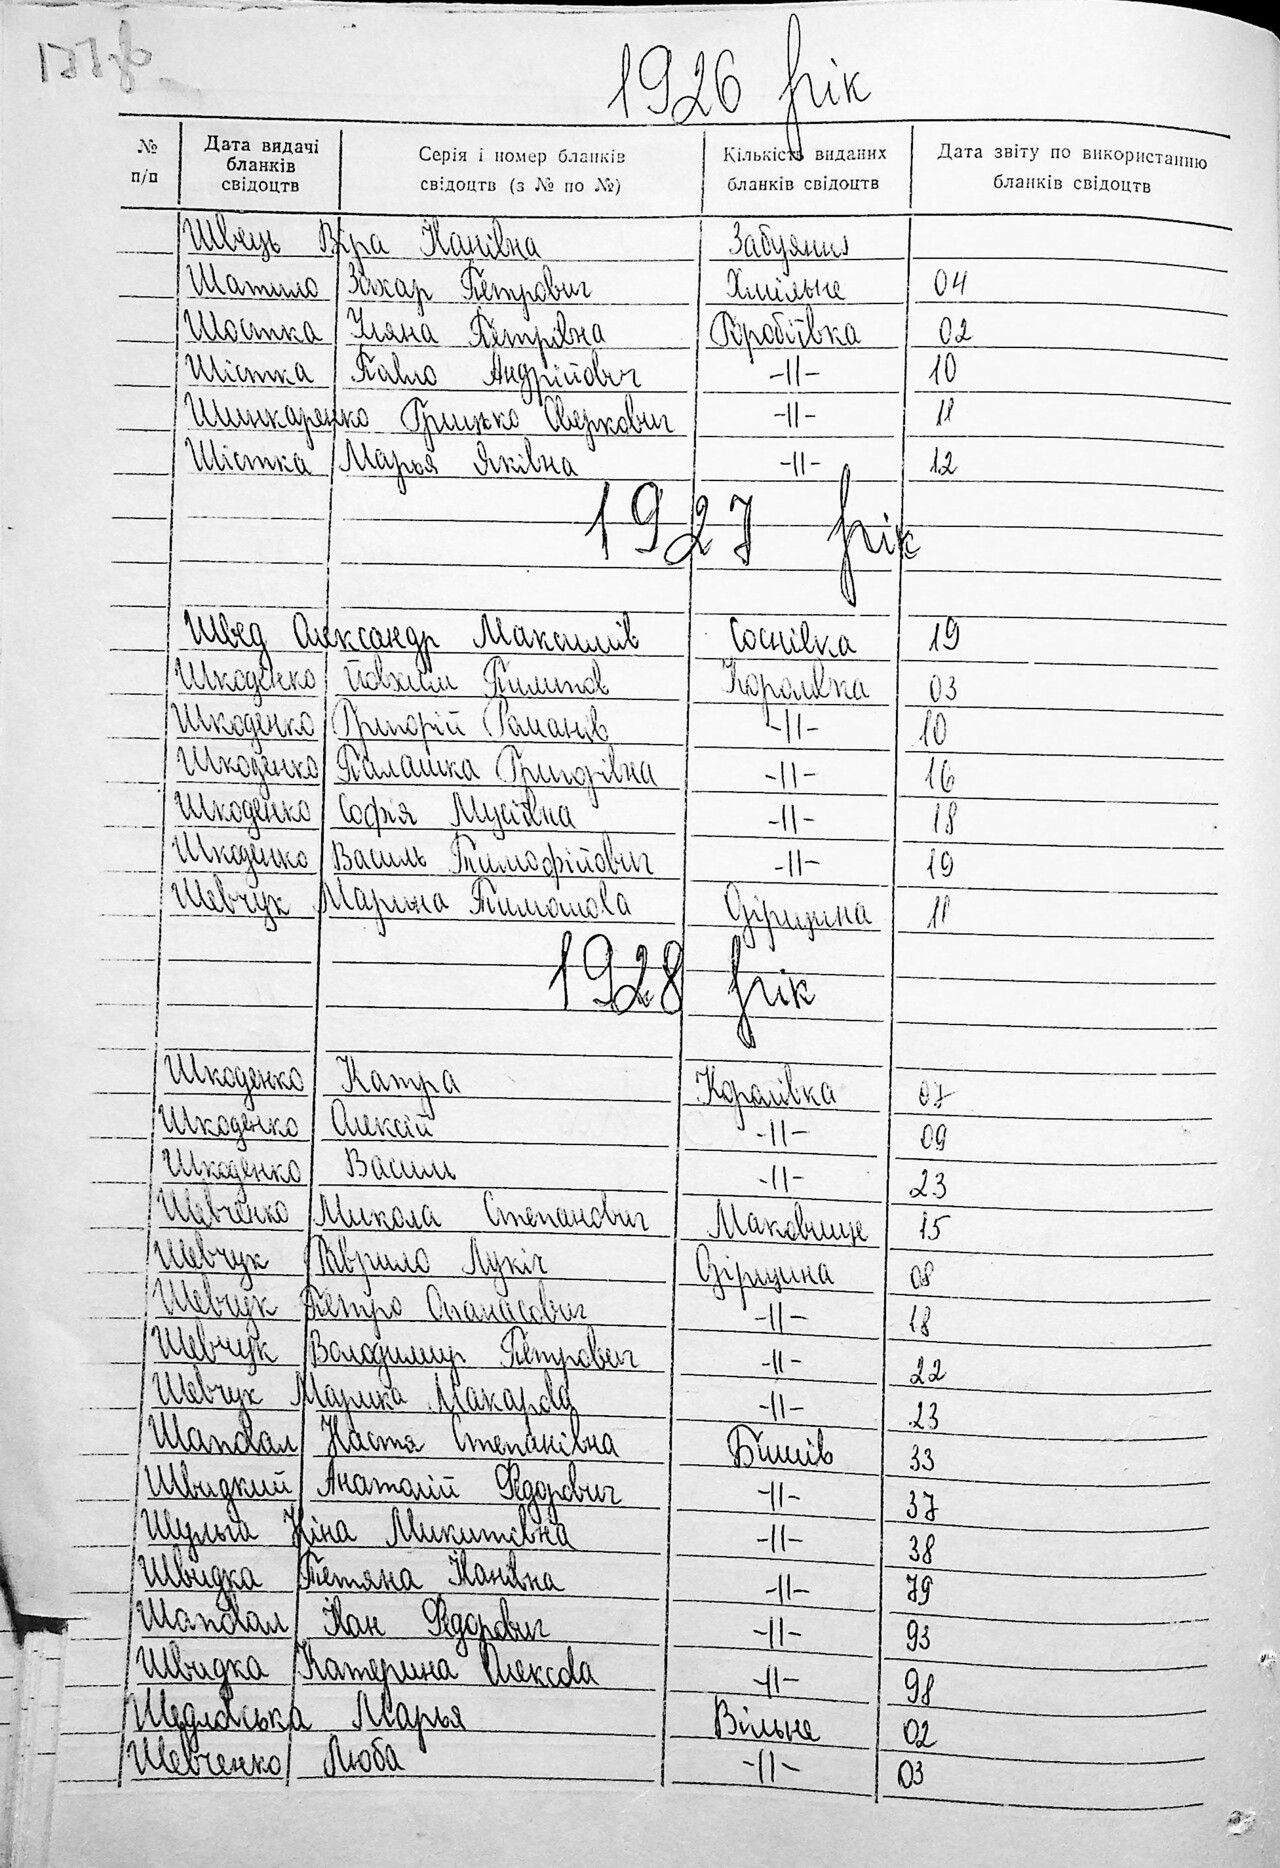 127зв
1926 рік
№ п/п | Дата видачі бланків свідоцтв | Серія і номер бланків свідоцтв (з № по №) | Кількість виданих бланків свідоцтв | Дата звіту по використанню бланків свідоцтв
Швець Віра Іванівна Забуяння
Шатило Захар Петрович Хмільне 04
Шостка Уляна Петрівна Воробіївка 02
Шістка Павло Андрійович -||- 10
Шинкаренко Грицько Оверкович -||- 11
Шістка Марья Яківна -||- 12
1927 рік
Швед Олександр Максимів Соснівка 19
Шкоденко Йовхим Пилипов Королівка 03
Шкоденко Григорій Романів -||- 10
Шкоденко Палашка Григорівна -||- 16
Шкоденко Софія Мусіївна -||- 18
Шкоденко Василь Тимофійович -||- 19
Шевчук Марина Тимошова Дірщина 11
1928 рік
Шкоденко Катра Королівка 07
Шкоденко Олексій -||- 09
Шкоденко Василь -||- 23
Шевченко Микола Степанович Маковище 15
Шевчук Гаврило Лукіч Дірщина 08
Шевчук Петро Опанасович -||- 18
Шевчук Володимир Петрович -||- 22
Шевчук Марика Макарова -||- 23
Шаповал Настя Степанівна Бишів 33
Швидкий Анатолій Федорович -||- 37
Шульга Ніна Микитівна -||- 38
Швидка Тетяна Іванівна -||- 79
Шаповал Іван Федорович -||- 93
Швидка Катерина Олексова -||- 98
Шедловська Марья Вільне 02
Шевченко Люба -||- 03